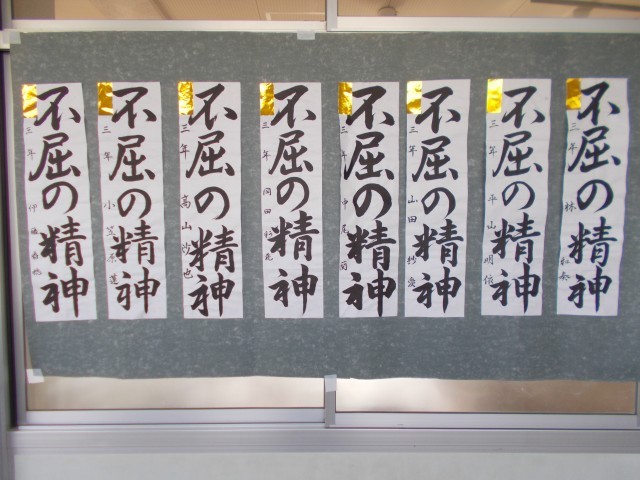 不屈の精神
三年 林
不屈の精神
三年 平山明信
不屈の精神
三年 山田紗愛
不屈の精神
三年 中尾蘭
不屈の精神
三年 岡田
不屈の精神
三年 高山沙也
不屈の精神
三年 小笠原蓮
不屈の精神
三年